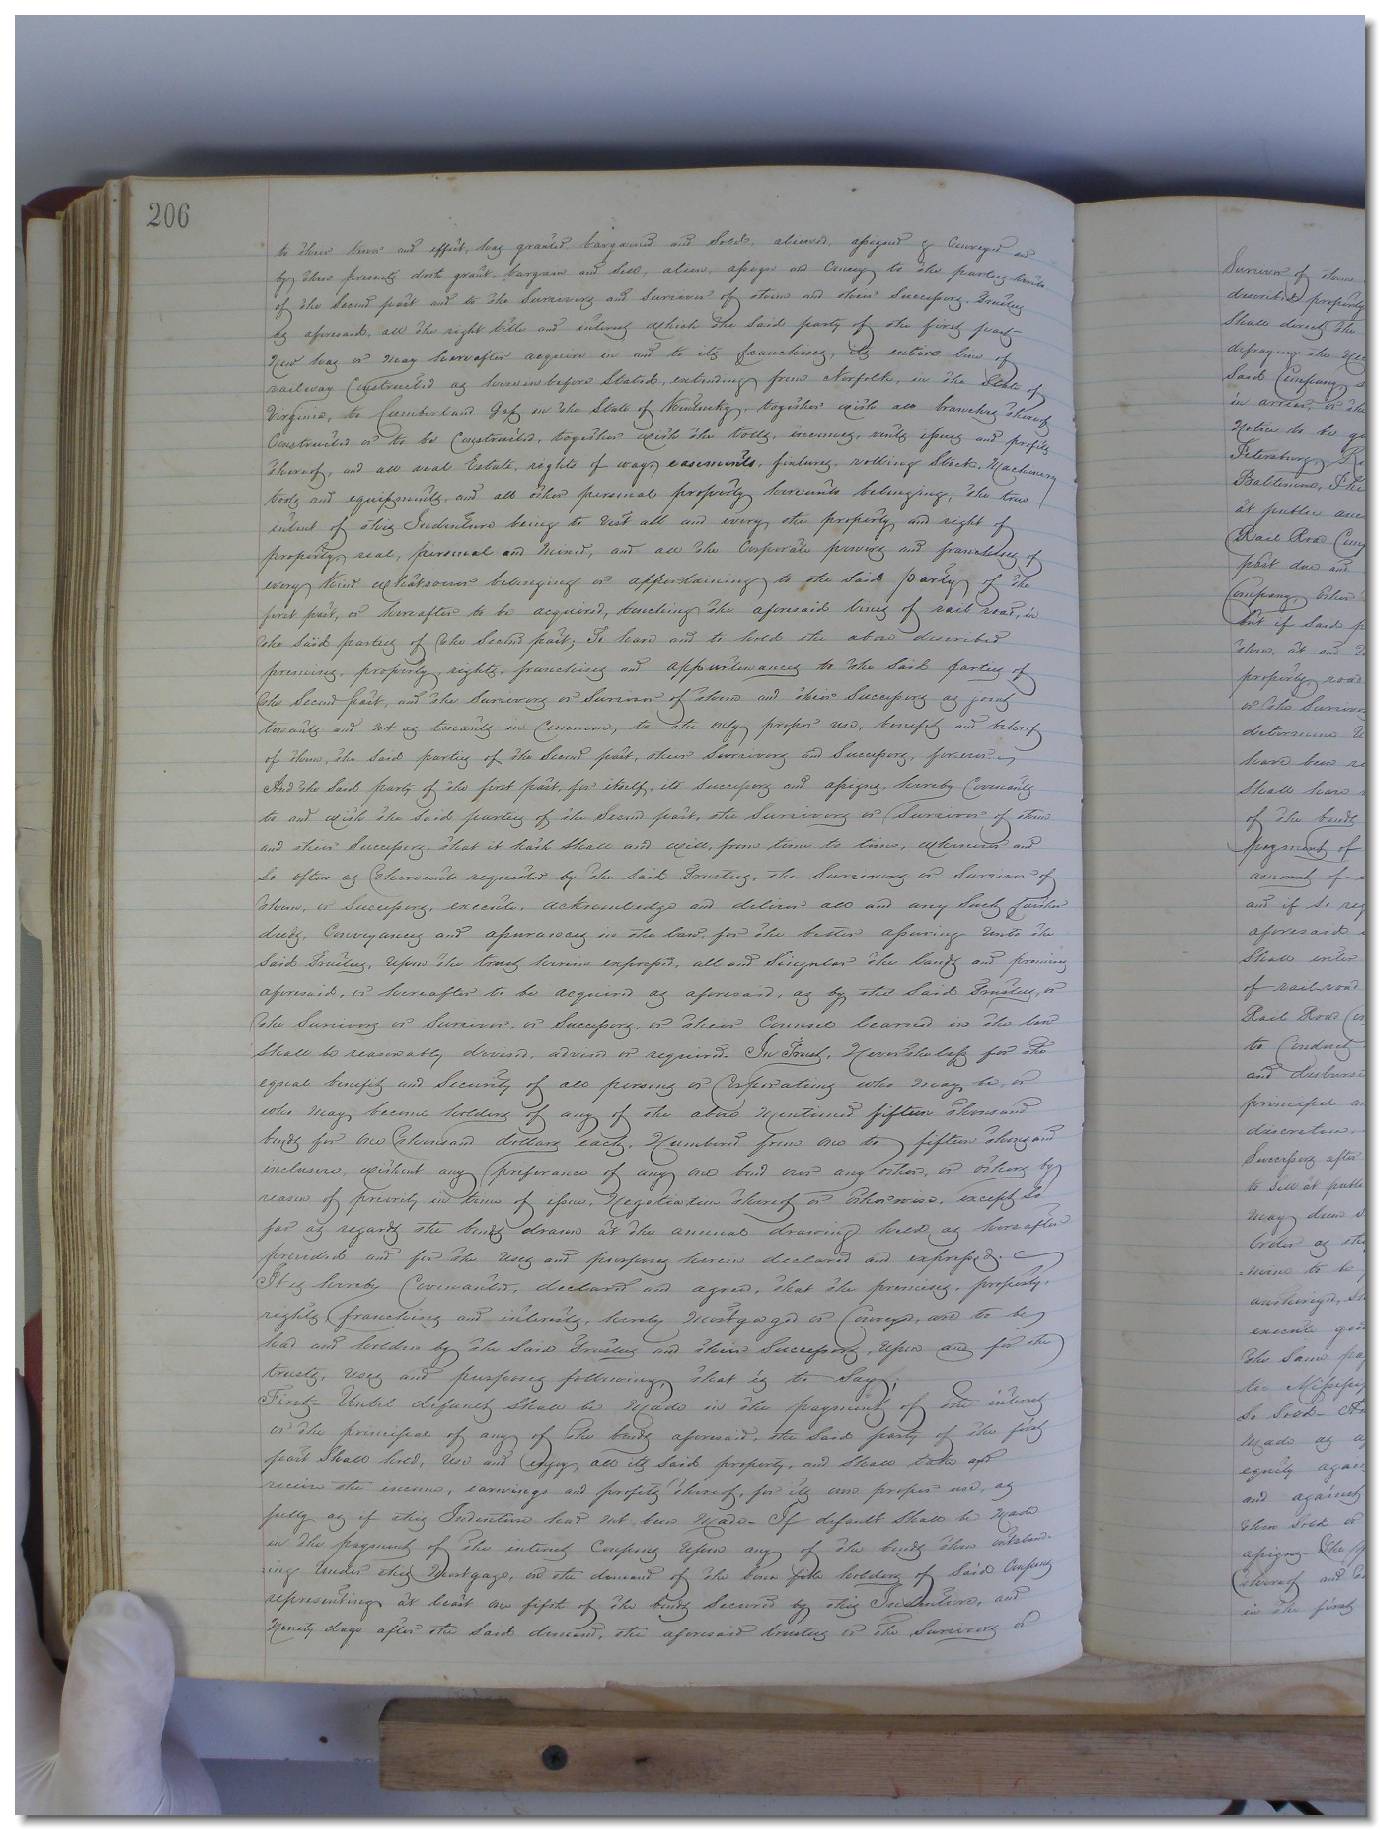 206
to their tenor and effect, has granted bargained and sold, aliened, assigned & conveyed and
by these presents doth grant, bargain and sell, alien, assign and convey to the parties
of the Second part and to the Survivors and Survivor of them and their Successors, Trustees
as aforesaid, all the right title and interest which the said party of the first part
Now has or may hereafter acquire in and to its franchises, its entire line of
railway Constructed as hereinbefore Stated, extending from Norfolk, in the State of
Virginia, to Cumberland Gap in the State of Kentucky, together with all branches thereof
Constructed or to be Constructed, together with the tolls, incomes, rents issues and profits
thereof, and all real Estate, rights of way, easements, fixtures, rolling Stock, Machinery
tools and equipments, and all other personal property hereunto belonging, the true
intent of this Indenture being to vest all and every the property and right of
property, real, personal and Mixed, and all the Corporate powers and franchises of
every kind whatsoever belonging or appertaining to the Said party of the
first part, or hereafter to be acquired, touching the aforesaid lines of rail road, in
the Said parties of the Second part; To have and to hold the above described
premises, property, rights, franchises and appurtenances to the Said parties of
the Second part, and the Survivors or Survivor of them and their Successors as joint
tenants and not as tenants in Common, to the only proper use, benefit and behoof
of them, the Said parties of the Second part, their Survivors and Successors, forever.
And the Said party of the first part, for itself, its successors and assigns, hereby Covenants
to and with the Said parties of the Second part, the Survivors or Survivor of them
and their Successors, that it hath Shall and will, from time to time, whenever and
So often as thereunto requested by the Said Trustees, the Surviving or Survivor of
them, or Successors, execute, acknowledge and deliver all and any Such further
deeds, Conveyances and assurances in the law, for the better assuring unto the
Said Trustees, Upon the trusts herein expressed, all and Singular the lands and premises
aforesaid, or hereafter to be acquired as aforesaid, as by the Said Trustees, or
the Survivors or Survivor, or Successors, or their Counsel learned in the law
Shall be reasonably devised, advised or required. In Trust, Nevertheless for the
equal benefit and Security of all persons or Corporations who may be, or
who may become holders of any of the above Mentioned fifteen thousand
bonds for one thousand dollars each, Numbered from one to fifteen thousand
inclusive, without any preferance of any one bond over any other, or others by
reason of priority in time of issue, Negotiation thereof or otherwise, except So
far as regards the bonds drawn at the annual drawing held as hereafter
provided and for the Uses and purposes herein declared and expressed.
It is hereby Covenanted, declared and agreed, that the premises, property,
rights, franchises and interests, hereby Mortgaged or Conveyed, are to be
had and holden by the Said Trustees and their Successors, Upon and for the
trusts, Uses and purposes following, that is to Say;
First- Until default Shall be Made in the payment of the interest
or the principal of any of the bonds aforesaid, the Said party of the first
part Shall hold, Use and Enjoy all its Said property, and Shall take and
receive the income, earnings and profits thereof, for its own proper use, as
fully as if this Indenture had not been Made- If default Shall be Made
in the payment of the interest Coupons Upon any of the bonds then outstand-
ing Under this Mortgage, on the demand of the bona fide holders of Said Coupons
representing at least one fifth of the bonds Secured by this Indenture, and
Ninety days after the Said demand, the aforesaid trustees or the Survivors or
Survivor of them
described property
Shall direct the
defraying the
Said Company,
in arrear, or the
Notice to be
Petersburg,
Baltimore, The
at public
Rail Road
past due and
Company,
but if Said
then, at and
property road
or the Survivors
determine
have been
Shall have
of the bonds
payment of
amount of
and if So
aforesaid
Shall enter
of rail-road
Rail Road
to Conduct
and disburse
principal
discretion
Successors after
to Sell at public
may deem
order as
execute
the Same
the Mississippi
So Sold-
Made as
equity
and against
then Sold or
assigns- The
thereof and
in the first